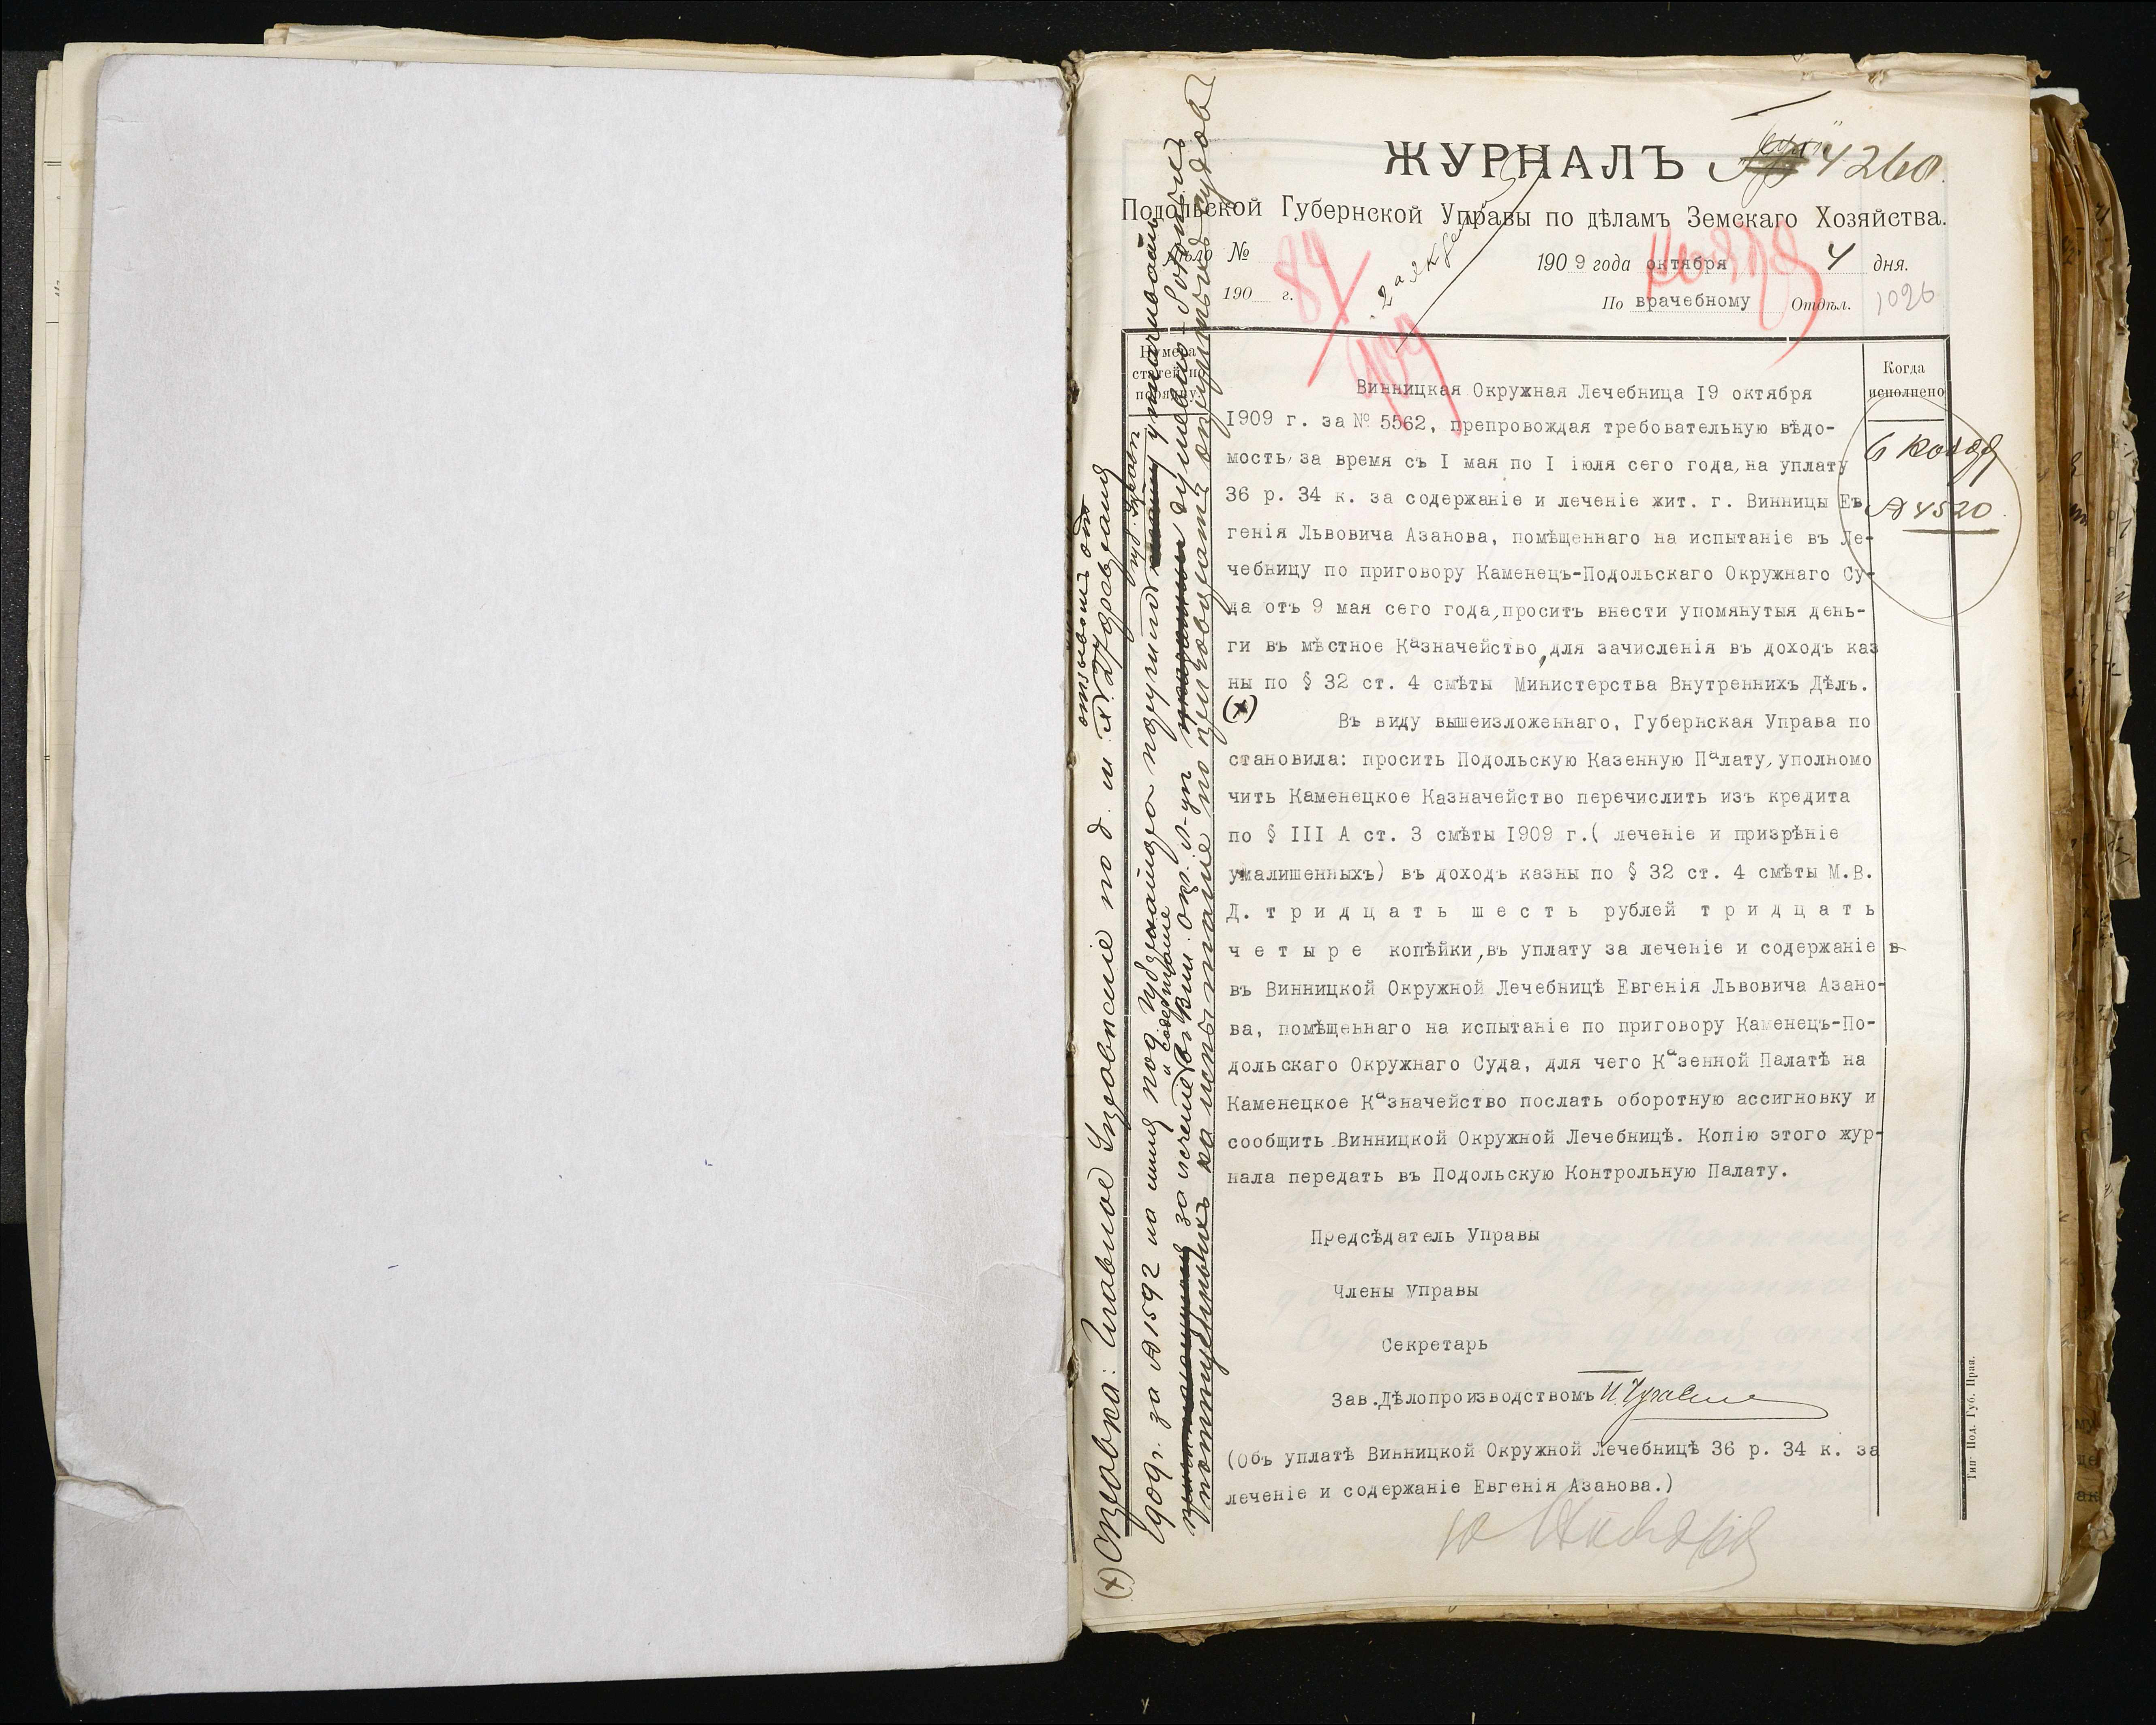 ЖУРНАЛЪ
4260
Подольской Губернской Управы по дѣламъ Земскаго Хозяйства.
Дѣло №
84
909
190 г.
1909 года октября 4 дня.
ноября
По врачебному Отдѣл.
1026
Нумера статей по порядку.
Когда исполнено
6 ноября
№ 4520
Винницкая Окружная Лечебница 19 октября
1909 г. за № 5562, препровождая требовательную вѣдо-
мость, за время съ I мая по I іюля сего года, на уплату
36 р. 34 к. за содержаніе и леченіе жит. г. Винницы Ев
генія Львовича Азанова, помѣщеннаго на испытаніе въ Ле-
чебницу по приговору Каменецъ-Подольскаго Окружнаго Су-
да отъ 9 мая сего года, проситъ внести упомянутыя день-
ги въ мѣстное Казначейство, для зачисленія въ доходъ каз
ны по § 32 ст. 4 смѣты Министерства Внутреннихъ Дѣлъ.
(х)
Въ виду вышеизложеннаго, Губернская Управа по
становила: просить Подольскую Казенную Палату, уполномо
чить Каменецкое Казначейство перечислить изъ кредита
по § III А ст. 3 смѣты 1909 г.( леченіе и призрѣніе
умалишенныхъ) въ доходъ казны по § 32 ст. 4 смѣты М.В.
Д. т р и д ц а т ь ш е с т ь рублей т р и д ц а т ь
ч е т ы р е копѣйки, въ уплату за леченіе и содержаніе в
въ Винницкой Окружной Лечебницѣ Евгенія Львовича Азано-
ва, помѣщеннаго на испытаніе по приговору Каменецъ-По-
дольскаго Окружнаго Суда, для чего Казенной Палатѣ на
Каменецкое Казначейство послать оборотную ассигновку и
сообщить Винницкой Окружной Лечебницѣ. Копію этого жур-
нала передать въ Подольскую Контрольную Палату.
Предсѣдатель Управы
Члены Управы
Секретарь
Зав.Дѣлопроизводствомъ
(Объ уплатѣ Винницкой Окружной Лечебницѣ 36 р. 34 к. за
леченіе и содержаніе Евгенія Азанова.)
Тип. Под. Губ. Прав.
(х) Справка: Главное Управленіе по д. м. х. отзывомъ отъ 27 февраля
1909 г. за № 1592 на имя под. Губернатора поручило губ. Управѣ уплачивать
за леченіе и содержаніе въ Вин. Окр. л-цѣ душевно-больныхъ
поступившихъ на испытаніе по приговорамъ окружныхъ судовъ